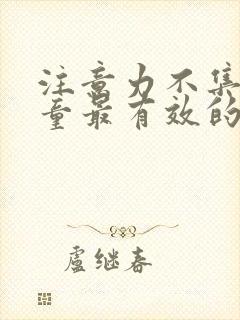 注意力不集
童最有效的
卢继春